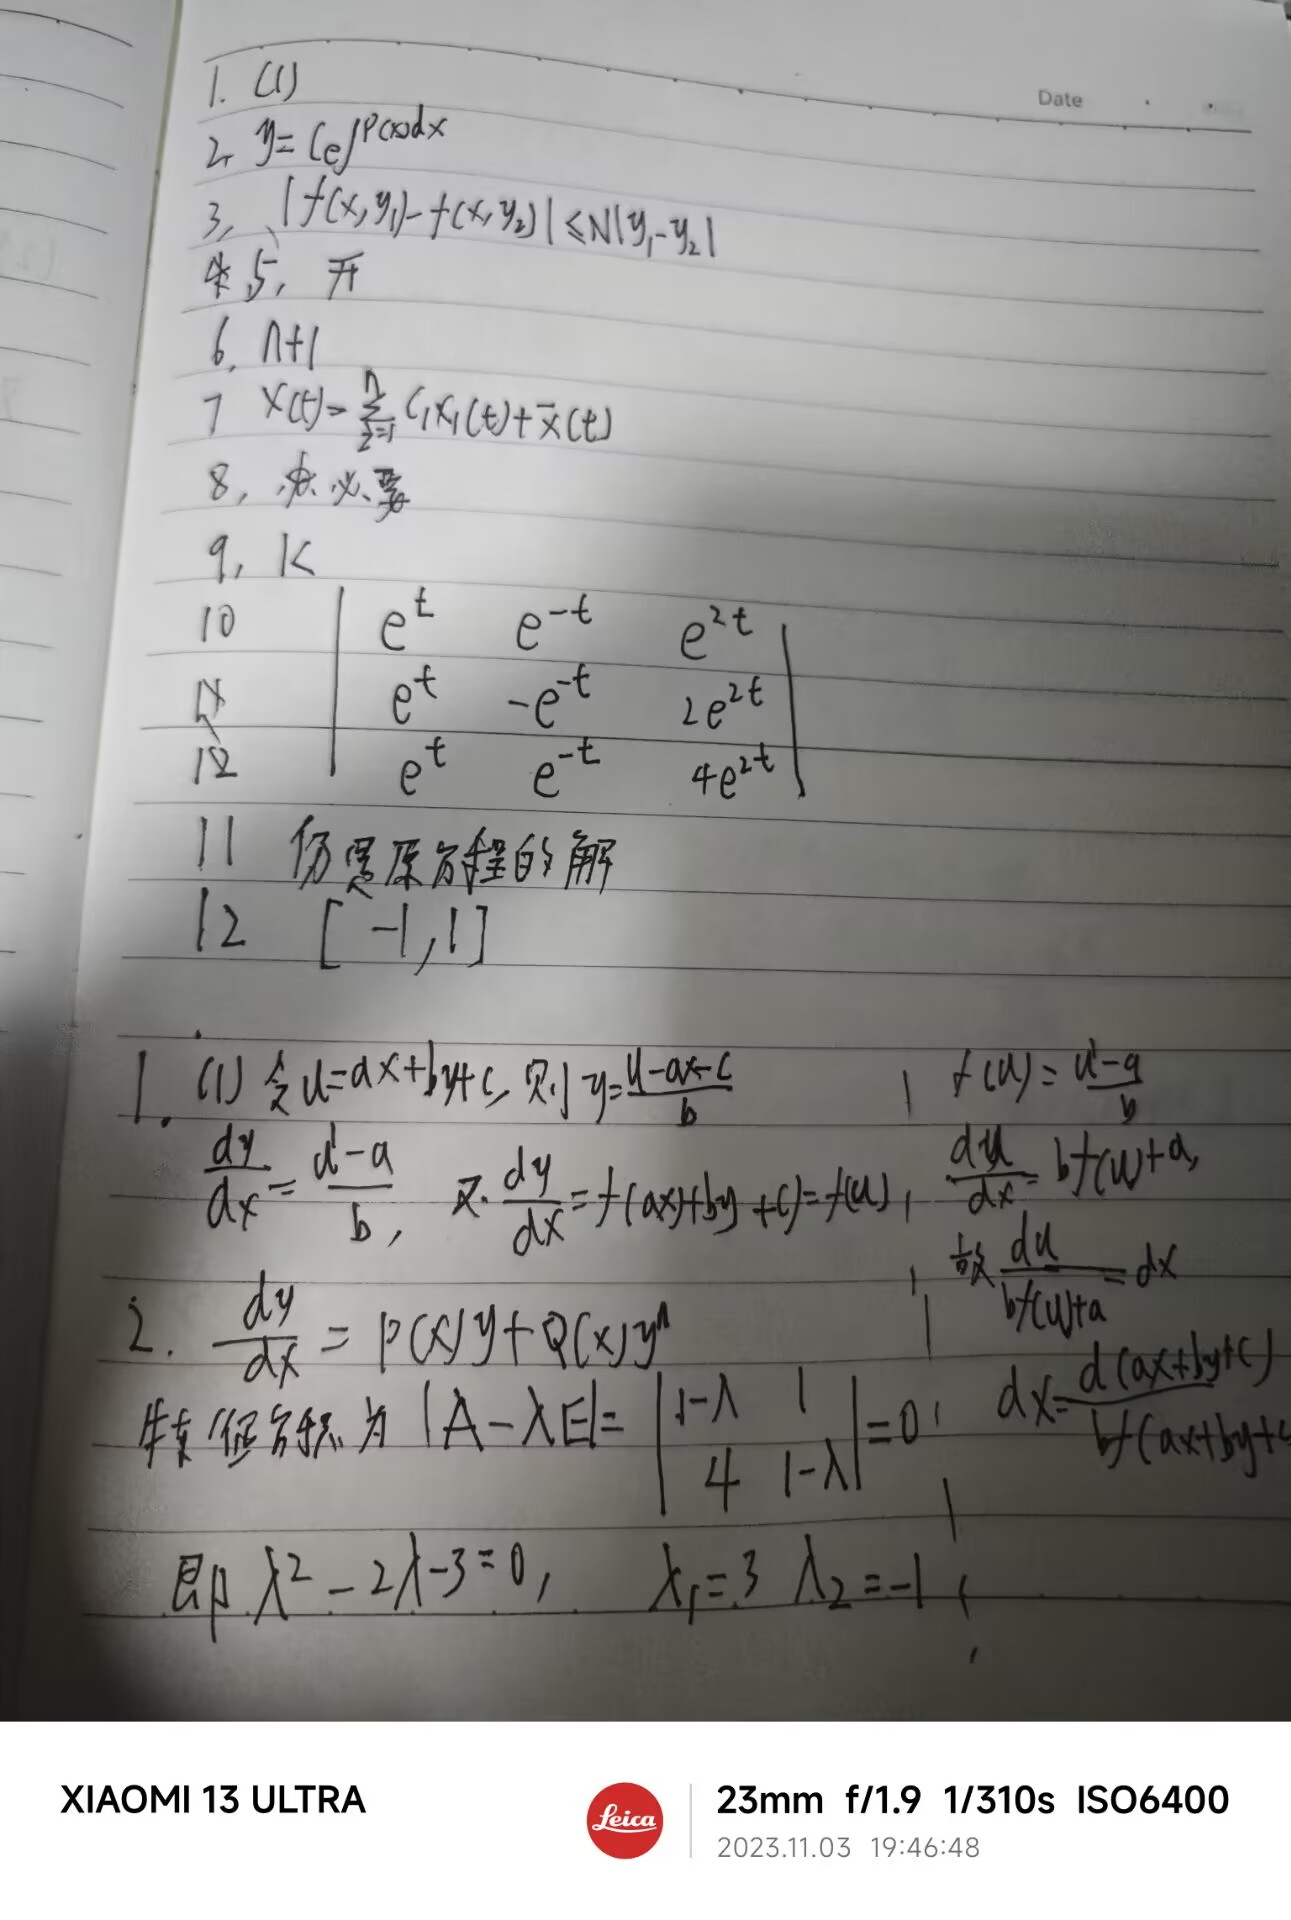 Date
1. (1)
2, y= Ce∫P(x)dx
3, |f(x,y₁)-f(x,y₂)|≤N|y₁-y₂|
5, 开
6, n+1
7 X(t)= Σⁿᵢ₌₁ CᵢXᵢ(t)+x̄(t)
8, 必要
9, K
10 | eᵗ e⁻ᵗ e²ᵗ |
| eᵗ -e⁻ᵗ 2e²ᵗ |
12 | eᵗ e⁻ᵗ 4e²ᵗ |
11 仍是原方程的解
12 [-1,1]
1. (1) 令u=ax+by+c, 则y=(u-ax-c)/b
dy/dx=(u'-a)/b, 又 dy/dx=f(ax+by+c)=f(u),
f(u)=(u'-a)/b
du/dx=bf(u)+a,
故 du/(bf(u)+a)=dx
dx=d(ax+by+c)/bf(ax+by+c
2. dy/dx = P(x)y+Q(x)yⁿ
特征方程为 |A-λE|= |1-λ 1|
|4 1-λ| =0
即 λ²-2λ-3=0, λ₁=3 λ₂=-1
XIAOMI 13 ULTRA
Leica
23mm f/1.9 1/310s ISO6400
2023.11.03 19:46:48